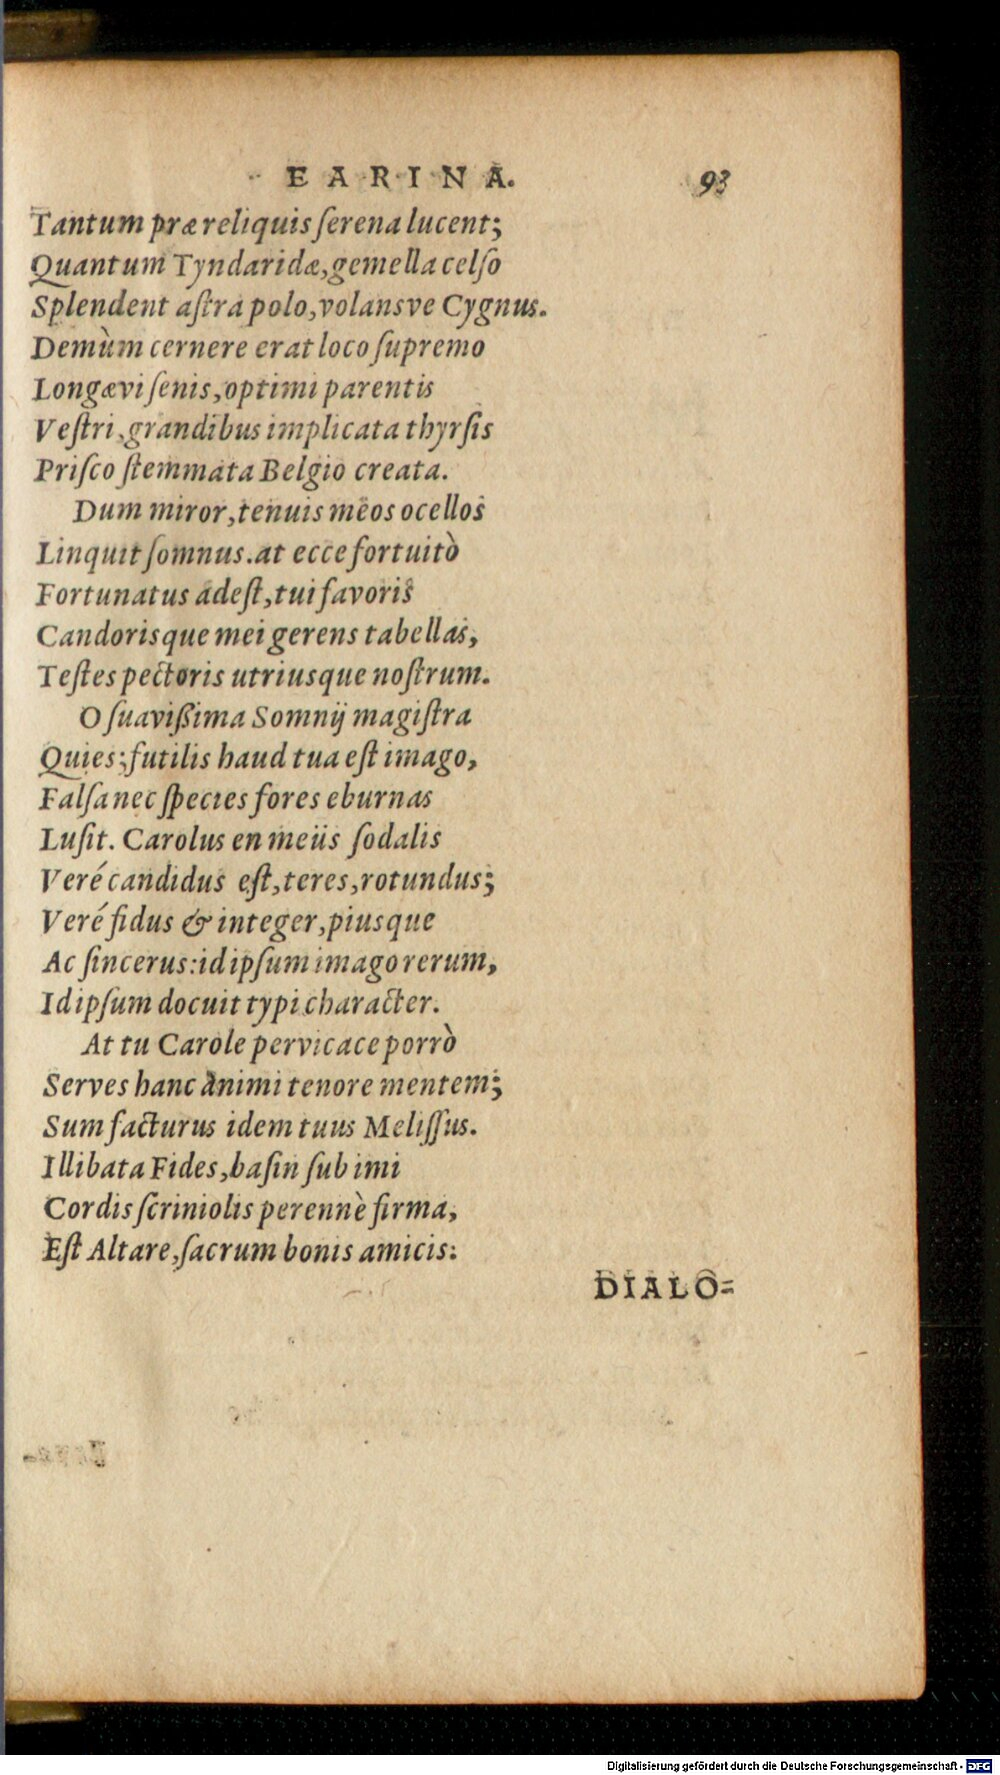 EARINA. 93
Tantum præ reliquis ſerena lucent;
Quantum Tyndaridæ, gemella celſo
Splendent aſtra polo, volansve Cygnus.
Demùm cernere erat loco ſupremo
Longævi ſenis, optimi parentis
Veſtri, grandibus implicata thyrſis
Priſco ſtemmata Belgio creata.
Dum miror, tenuis meos ocellos
Linquit ſomnus. at ecce fortuitò
Fortunatus adeſt, tui favoris
Candorisque mei gerens tabellas,
Teſtes pectoris utriusque noſtrum.
O ſuavißima Somnij magiſtra
Quies; futilis haud tua eſt imago,
Falſa nec ſpecies fores eburnas
Luſit. Carolus en meüs ſodalis
Veré candidus eſt, teres, rotundus;
Veré fidus & integer, piusque
Ac ſincerus: id ipſum imago rerum,
Id ipſum docuit typi character.
At tu Carole pervicace porrò
Serves hanc animi tenore mentem;
Sum facturus idem tuus Meliſſus.
Illibata Fides, baſin ſub imi
Cordis ſcriniolis perennè firma,
Eſt Altare, ſacrum bonis amicis.
DIALO=
Digitalisierung gefördert durch die Deutsche Forschungsgemeinschaft - DFG